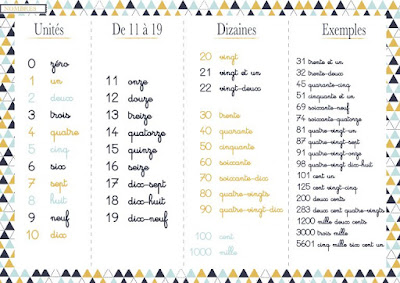 Unités
0 zéro
1 un
2 deux
3 trois
4 quatre
5 cinq
6 six
7 sept
8 huit
9 neuf
10 dix
De 11 à 19
11 onze
12 douze
13 treize
14 quatorze
15 quinze
16 seize
17 dix-sept
18 dix-huit
19 dix-neuf
Dizaines
20 vingt
21 vingt et un
22 vingt-deux
30 trente
40 quarante
50 cinquante
60 soixante
70 soixante-dix
80 quatre-vingts
90 quatre-vingt-dix
100 cent
1000 mille
Exemples
31 trente et un
32 trente-deux
45 quarante-cinq
51 cinquante et un
69 soixante-neuf
74 soixante-quatorze
81 quatre-vingt-un
87 quatre-vingt-sept
91 quatre-vingt-onze
98 quatre-vingt dix-huit
101 cent un
125 cent vingt-cinq
200 deux cents
283 deux cent quatre-vingts
1200 mille deux cents
3000 trois mille
5601 cinq mille six cent un